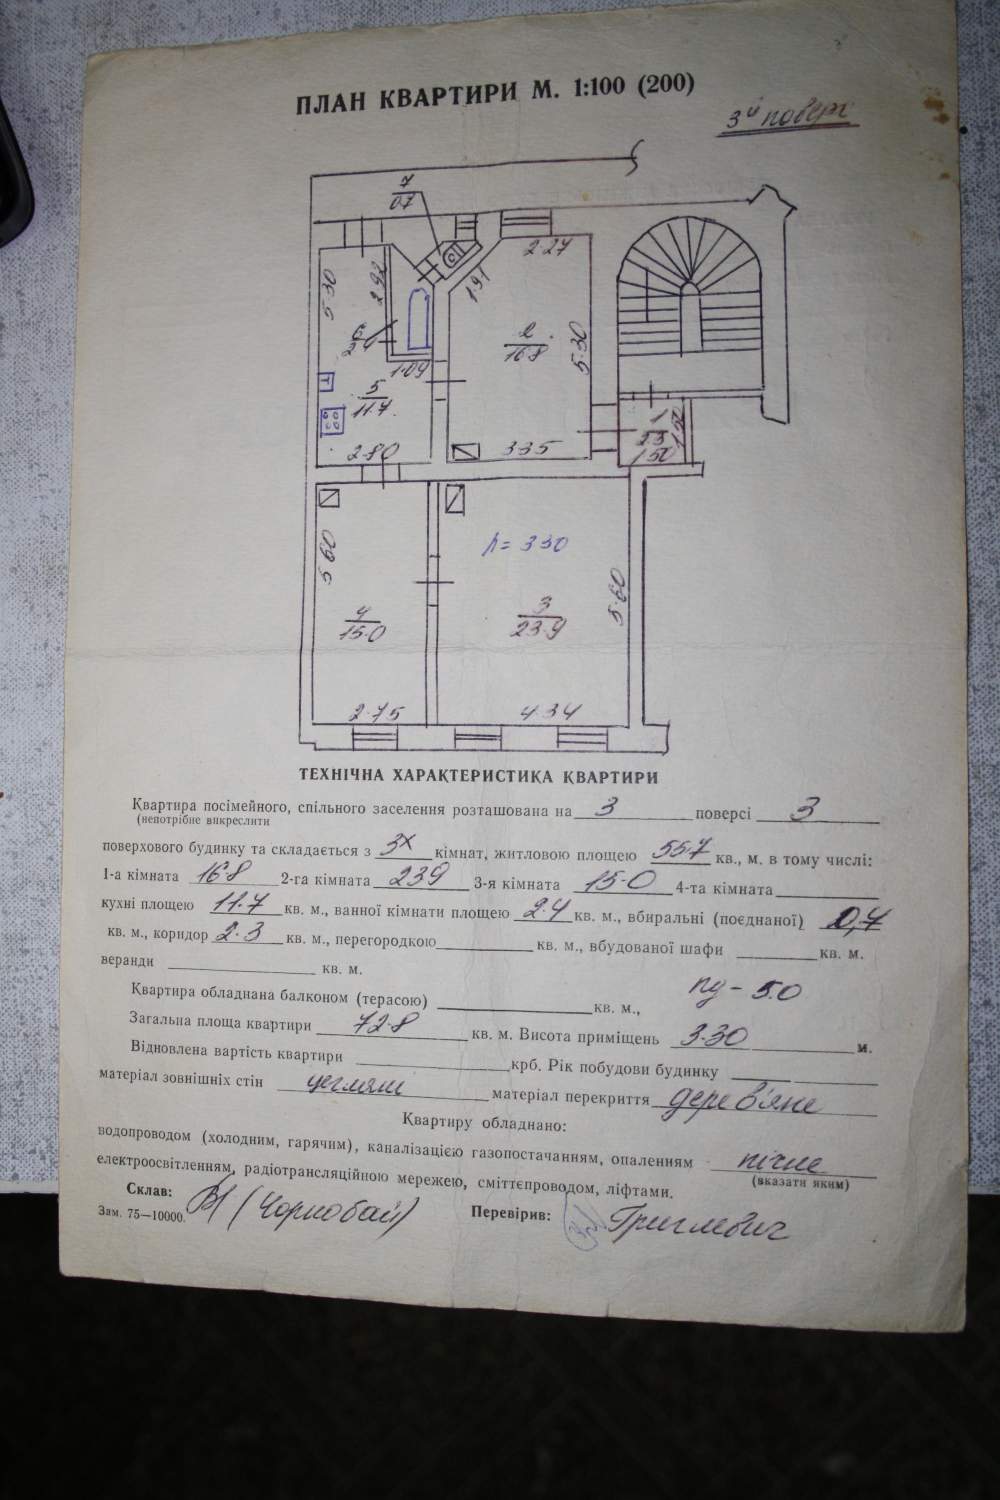 ПЛАН КВАРТИРИ М. 1:100 (200)
3й поверх
7
0.7
2.27
5.30
2.92
1.91
6
2.4
2
16.8
5.30
1.09
5
11.7
1
2.3
1.50
1.50
2.80
3.35
h = 3.30
5.60
5.60
4
15.0
3
23.9
2.75
4.34
ТЕХНІЧНА ХАРАКТЕРИСТИКА КВАРТИРИ
Квартира посімейного, спільного заселення розташована на 3 поверсі 3
(непотрібне викреслити
поверхового будинку та складається з 3х кімнат, житловою площею 55.7 кв., м. в тому числі:
1-а кімната 16.8 2-га кімната 23.9 3-я кімната 15.0 4-та кімната
кухні площею 11.7 кв. м., ванної кімнати площею 2.4 кв. м., вбиральні (поєднаної) 0,7
кв. м., коридор 2.3 кв. м., перегородкою кв. м., вбудованої шафи кв. м.
веранди кв. м.
Квартира обладнана балконом (терасою) кв. м., пд – 5.0
Загальна площа квартири 72.8 кв. м. Висота приміщень 3.30 м.
Відновлена вартість квартири крб. Рік побудови будинку
матеріал зовнішніх стін цегляні матеріал перекриття дерев'яне
Квартиру обладнано:
водопроводом (холодним, гарячим), каналізацією газопостачанням, опаленням пічне
електроосвітленням, радіотрансляційною мережею, сміттєпроводом, ліфтами. (вказати яким)
Склав: (Чорнобай) Перевірив: Григлевич
Зам. 75—10000.